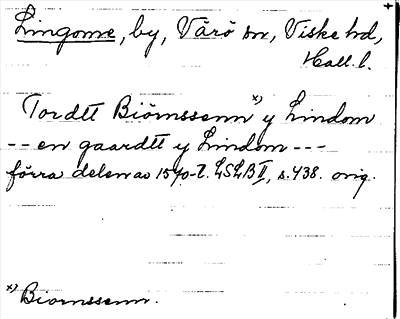 Lingome, by, Värö sn, Viske hd,
Hall. l.
Tordtt Biörnssenn x) y Lindom
-- en gaardtt y Lindom ---
förra delen av 1540-t. LSLB II, s. 438. orig.
x) Biornssenn.